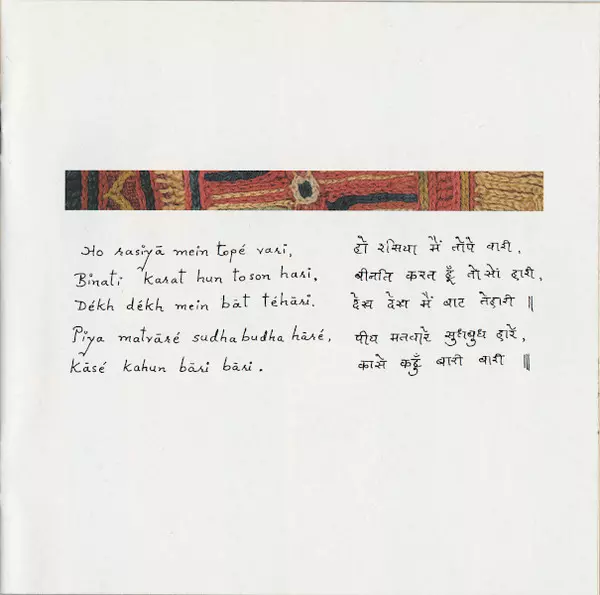 Ho rasiyā mein topé vari,
Binati karat hun toson hari,
Dékh dékh mein bāt téhāri.
Piya matvāré sudhabudha hāré,
Kāsé kahun bāri bāri.
हों रसिया मैं तोपे वारी,
बीनति करत हूँ तोसों हारी,
देख देख मैं बाट तेहारी ॥
पीय मतवारे सुधबुध हारे,
कासे कहूँ बारी बारी ॥